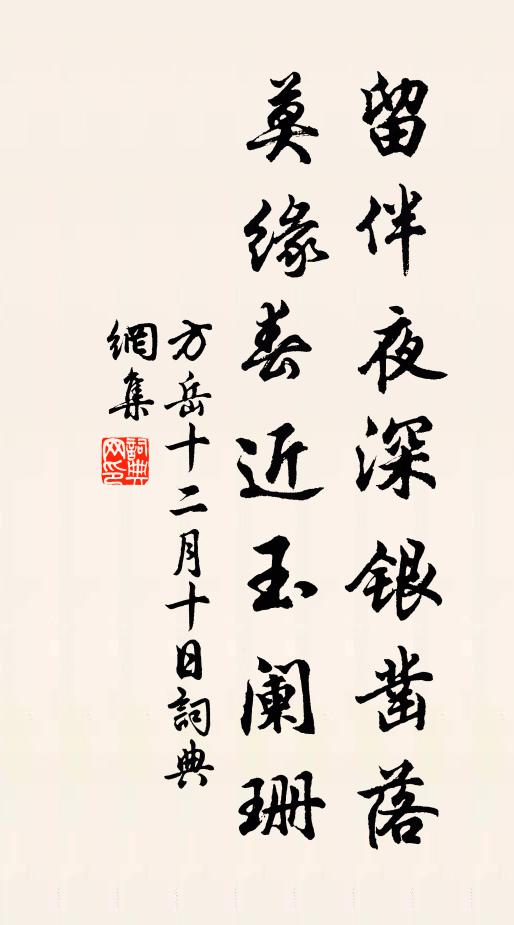 留伴夜深銀凿落
莫缘春近玉阑珊
方岳十二月十日詞典
網集
詞典网印